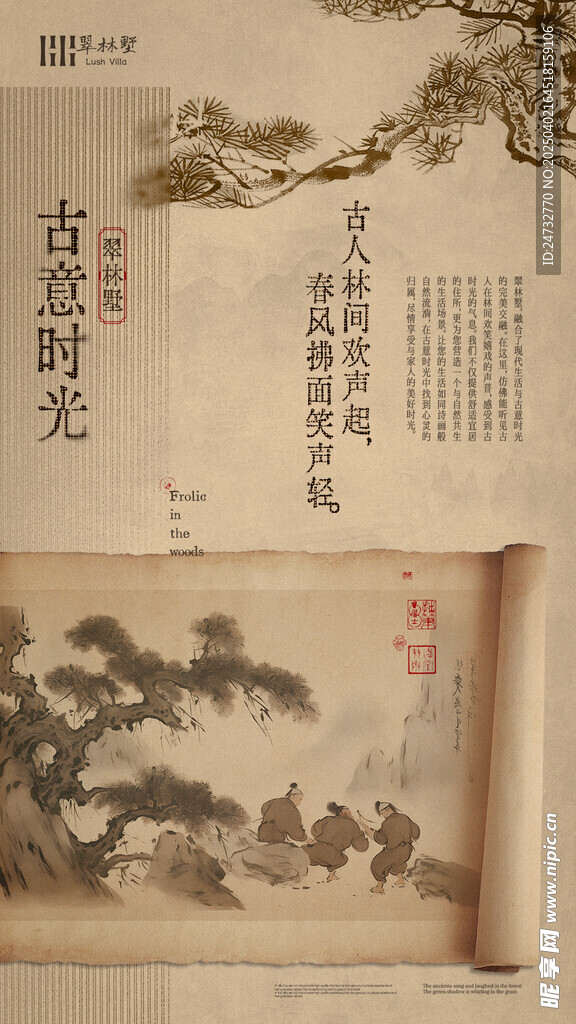 翠林墅
Lush Villa
古意时光
翠林墅
古人林间欢声起，
春风拂面笑声轻。
翠林墅，融合了现代生活与古意时光
的完美交融。在这里，仿佛能听见古
人在林间欢笑嬉戏的声音，感受到古
时光的气息。我们不仅提供舒适宜居
的住所，更为您营造一个与自然共生
的生活场景。让您的生活如同诗画般
自然流淌，在古意时光中找到心灵的
归属，尽情享受与家人的美好时光。
Frolic
in
the
woods
The ancients sang and laughed in the forest
The green shadow is whirling in the grass
ID:24732770 NO:20250402164518159106
昵享网 www.nipic.cn